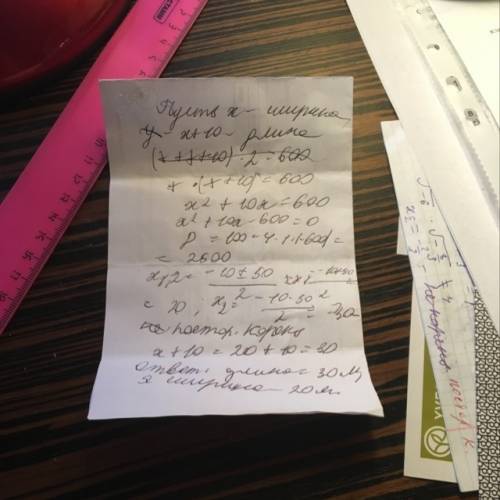 Пусть x - ширина
x+10 - длина
(x+x+10)·2=600
x·(x+10)=600
x²+10x=600
x²+10x-600=0
D = 100-4·1·(-600)=
= 2500
x1,2= -10±50 / 2 x1= -10+50 / 2
= 20, x2= -10-50 / 2 = -30
постор. корень
x+10=20+10=30
Ответ: длина = 30 м,
а ширина - 20 м.
посторо. к.